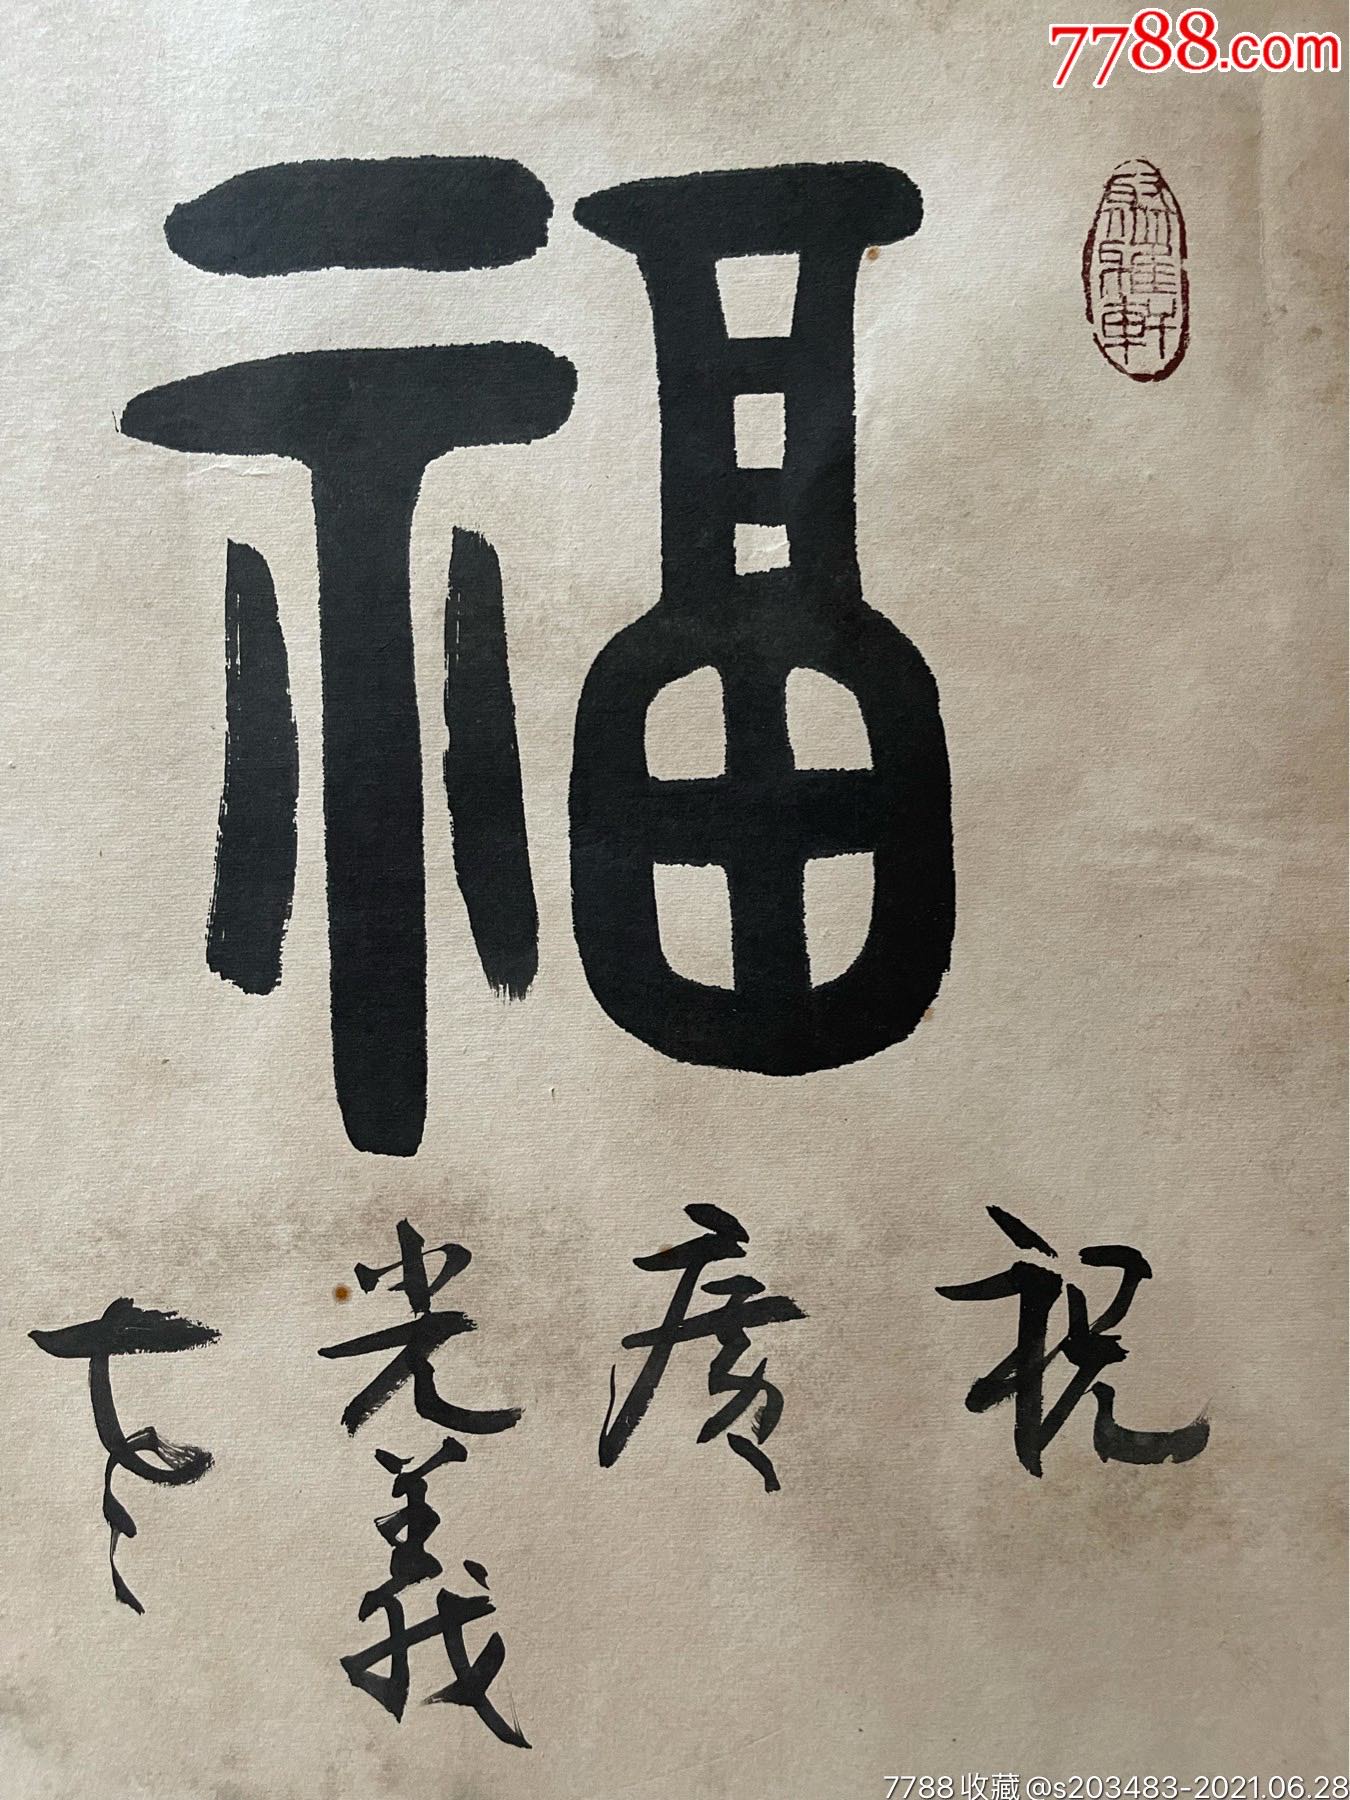 7788.com
福
祝
廣
光義
7788收藏 @s203483-2021.06.28